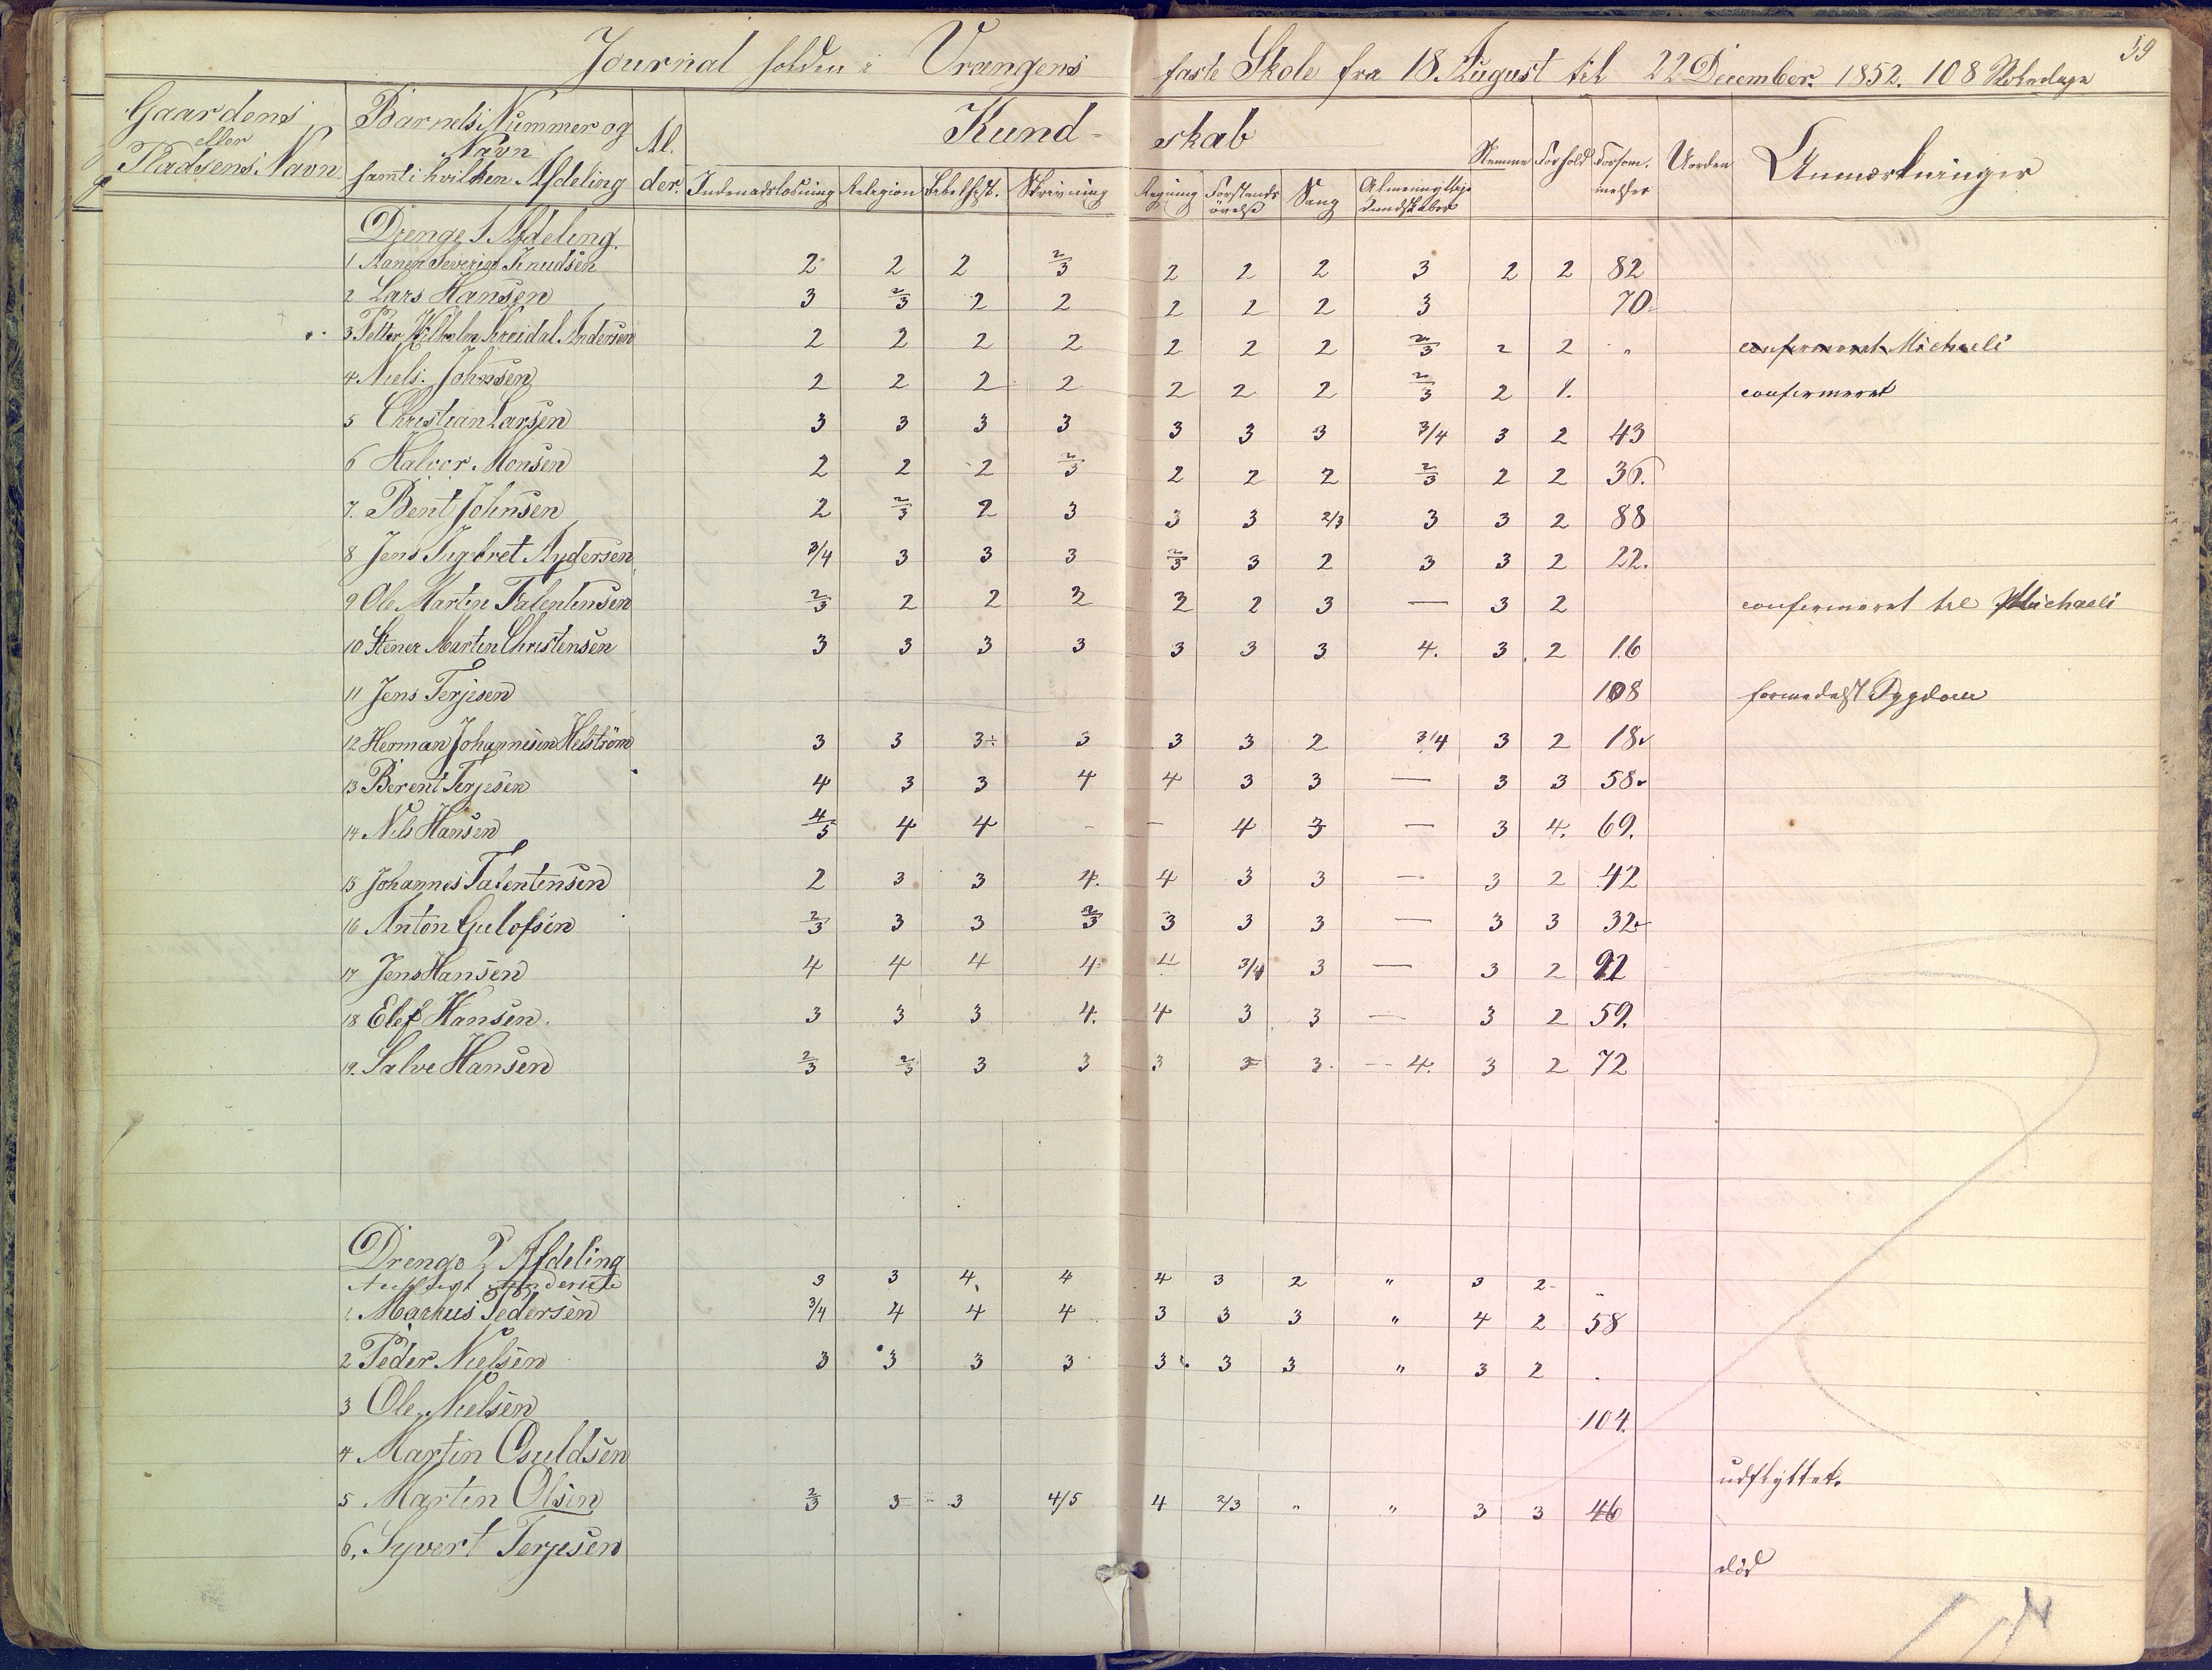 59
Journal holden i Vrangens faste Skole fra 18 August til 22 December. 1852. 108 Skoledage
Gaardens eller Pladsens Navn. | Barnets Nummer og Navn samt i hvilken Afdeling | Al. der. | Kund- skab | Nemme | Forhold | Forsom. melser | Uorden | Anmærkninger
Indenadslæsning | Religion | Bibelhist. | Skrivning | Regning | Forstands øvelse | Sang | Almeennyttige Kundskaber
Drenge 1 Afdeling.
1 Severin Knudsen 2 2 2 2/3 2 2 2 3 2 2 82
2 Lars Hansen 3 2/3 2 2 2 2 2 3 70
3 Petter Wilhelm Andersen 2 2 2 2 2 2 2 2/3 2 2 " confirmeret Michaeli
4 Niels Johnsen 2 2 2 2 2 2 2 2/3 2 1. confirmeret
5 Christian Larsen 3 3 3 3 3 3 3 3/4 3 2 43
6 Halvor Monsen 2 2 2 2/3 2 2 2 2/3 2 2
7. Bent Johnsen 2 2/3 2 3 3 3 2/3 3 3 2 88
8 Jens Ingebret Andersen 3/4 3 3 3 2/3 3 2 3 3 2 22.
9 Ole Martin Falentinsen 2/3 2 2 2 3 — 3 2 confirmeret til Michaeli
10 Stener Martin Christensen 3 3 3 3 3 3 3 4. 3 2 16
11 Jens Terjesen 108 formedelst Sygdom
12 Herman Johannesen Helström 3 3 3÷ 3 3 3 2 3/4 3 2 18
13 Berent Terjesen 4 3 3 4 4 3 3 — 3 3 58
14 Nils Hansen 4/5 4 4 - — 4 3 — 3 4. 69.
15 Johannes Falentinsen 2 3 3 4. 4 3 3 — 3 2 42
16 Anton Gulofsen 2/3 3 3 2/3 3 3 3 — 3 3 32
17 Jens Hansen 4 4 4 4 4 3/4 3 — 3 2
18 Elef Hansen. 3 3 3 4. 4 3 3 — 3 2 59.
19. Salve Hansen 2/3 2/3 3 3 3 3 3. -- 4. 3 2 72
Drenge 2 Afdeling
3 3 4 4 4 3 2 " 3 2 "
1. Markus Pedersen 3/4 4 4 4 3 3 3 " 4 2 58
2 Peder Nielsen 3 3 3 3 3 3 3 " 3 2 .
3 Ole Nielsen 104.
4 Martin Osuldsen udflyttet.
5 Martin Olsen 2/3 3 3 4/5 4 2/3 " " 3 3 46
6. Syvert Terjesen död